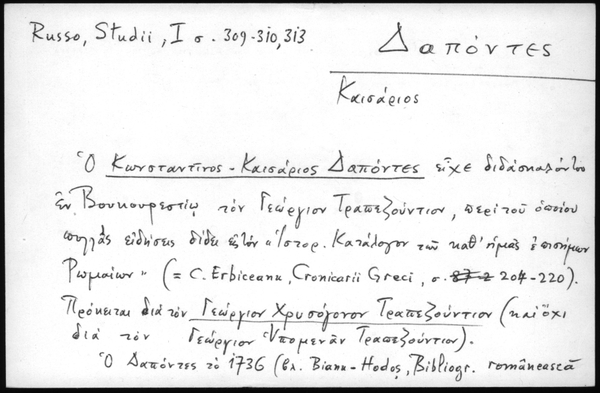 Russo, Studii, I σ. 309-310, 313
Δαπόντες
Καισάριος
Ὁ Κωνσταντῖνος-Καισάριος Δαπόντες εἶχε διδάσκαλόν του
ἐν Βουκουρεστίῳ τὸν Γεώργιον Τραπεζούντιον, περὶ τοῦ ὁποίου
πολλὰς εἰδήσεις δίδει εἰς τὸν «Ἱστορ. Κατάλογον τῶν καθ' ἡμᾶς ἐπισήμων
Ρωμαίων» (= C. Erbiceanu, Cronicarii Greci, σ. 87-2 204-220).
Πρόκειται διὰ τὸν Γεώργιον Χρυσόγονον Τραπεζούντιον (καὶ ὄχι
διὰ τὸν Γεώργιον Ὑπομενᾶν Τραπεζούντιον).
Ὁ Δαπόντες τὸ 1736 (βλ. Bianu-Hodoş, Bibliogr. românească